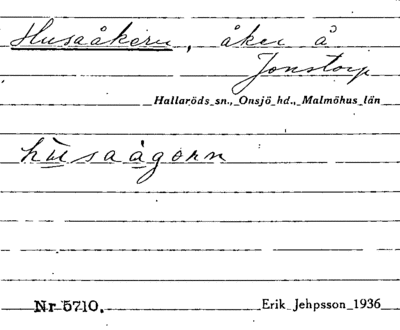 Husaåkern, åker å
Jonstorp
Hallaröds sn., Onsjö hd., Malmöhus län
husaågorn
Nr 5710.
Erik Jehpsson 1936